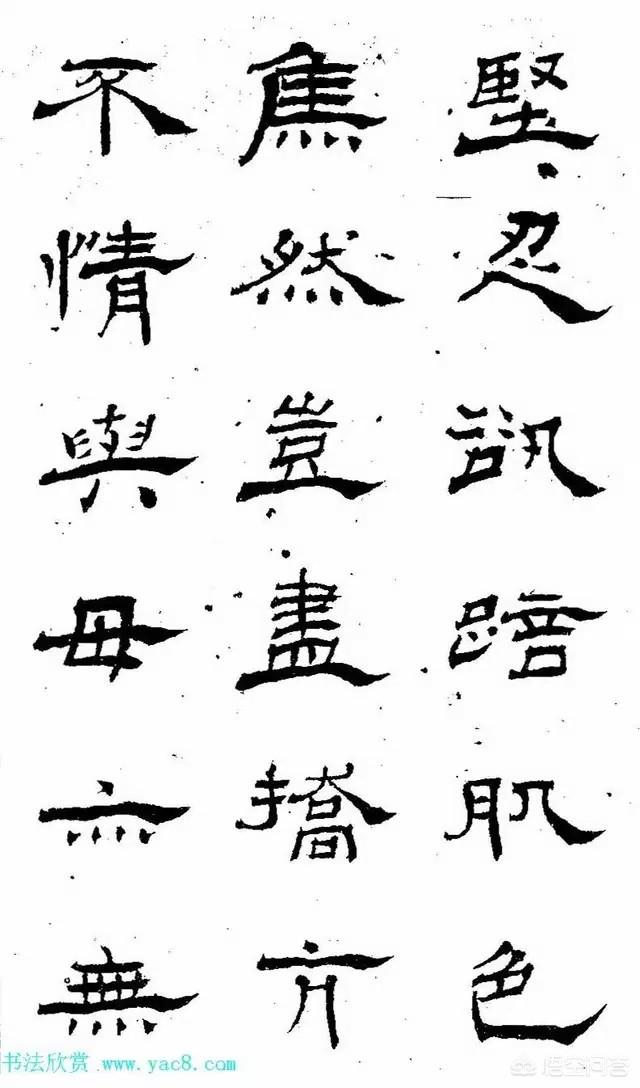 堅忍訊踣肌色
焦然豈盡撟亢
不情與毋亦無
书法欣赏 www.yac8.com
悟空问答